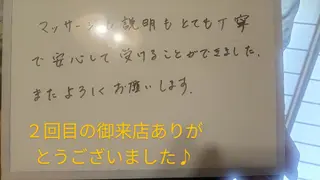 マッサージの説明もとても丁寧
で安心して受けることができました。
またよろしくお願いします。
２回目の御来店ありが
とうございました♪